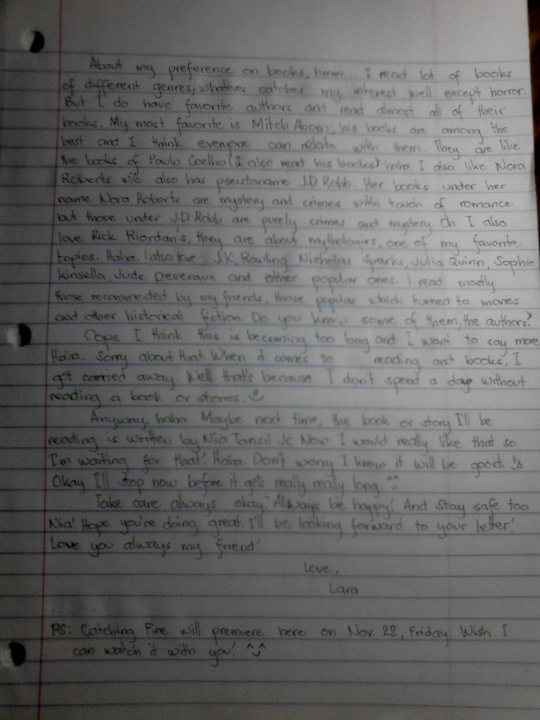 About my preference on books, hmm... I read lot of books
of different genres, whatever catches my interest well except horror.
But I do have favorite authors and read almost all of their
books. My most favorite is Mitch Albom, his books are among the
best and I think everyone can relate with them. They are like
the books of Paulo Coelho (I also read his books) haha. I also like Nora
Roberts w/c also has pseudoname J.D Robb. Her books under her
name Nora Roberts are mystery and crimes with touch of romance
but those under J.D Robb are purely crimes and mystery. Oh I also
love Rick Riordan's, they are about mythologies, one of my favorite
topics. Haha. I also love J.K. Rowling, Nicholas Sparks, Julia Quinn, Sophie
Kinsella, Jude Deveraux and other popular ones. I read mostly
those recommended by my friends, those popular which turned to movies
and other historical fiction. Do you know some of them, the authors?
Oops I think this is becoming too long and I want to say more
Haha. Sorry about that. When it comes to reading and books, I
got carried away. Well that's because I don't spend a day without
reading a book or stories.
Anyway, haha. Maybe next time, the book or story I'll be
reading is written by Nia Tanzil Jc. Now I would really like that so
I'm waiting for that! Haha. Don't worry I know it will be good.
Okay I'll stop now before it gets really really long. ^^
Take care always okay. Always be happy! And stay safe too
Nia! Hope you're doing great. I'll be looking forward to your letter!
Love you always my friend!
Love,
Lara
PS: Catching Fire will premiere here on Nov. 22, Friday. Wish I
can watch it with you! ^^